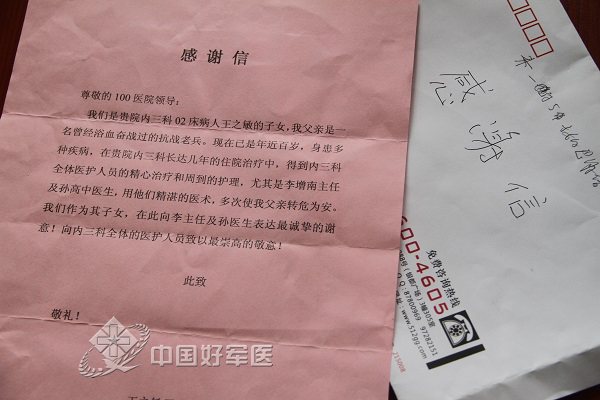 感谢信
尊敬的100医院领导：
我们是贵院内三科02床病人王之敏的子女，我父亲是一
名曾经浴血奋战过的抗战老兵。现在已是年近百岁，身患多
种疾病，在贵院内三科长达几年的住院治疗中，得到内三科
全体医护人员的精心治疗和周到的护理，尤其是李增南主任
及孙高中医生，用他们精湛的医术，多次使我父亲转危为安。
我们作为其子女，在此向李主任及孙医生表达最诚挚的谢
意！向内三科全体的医护人员致以最崇高的敬意！
此致
敬礼！
中国好军医
感谢信
600-4605
免费咨询热线
87800969 97282151
www.512gg.com
215008